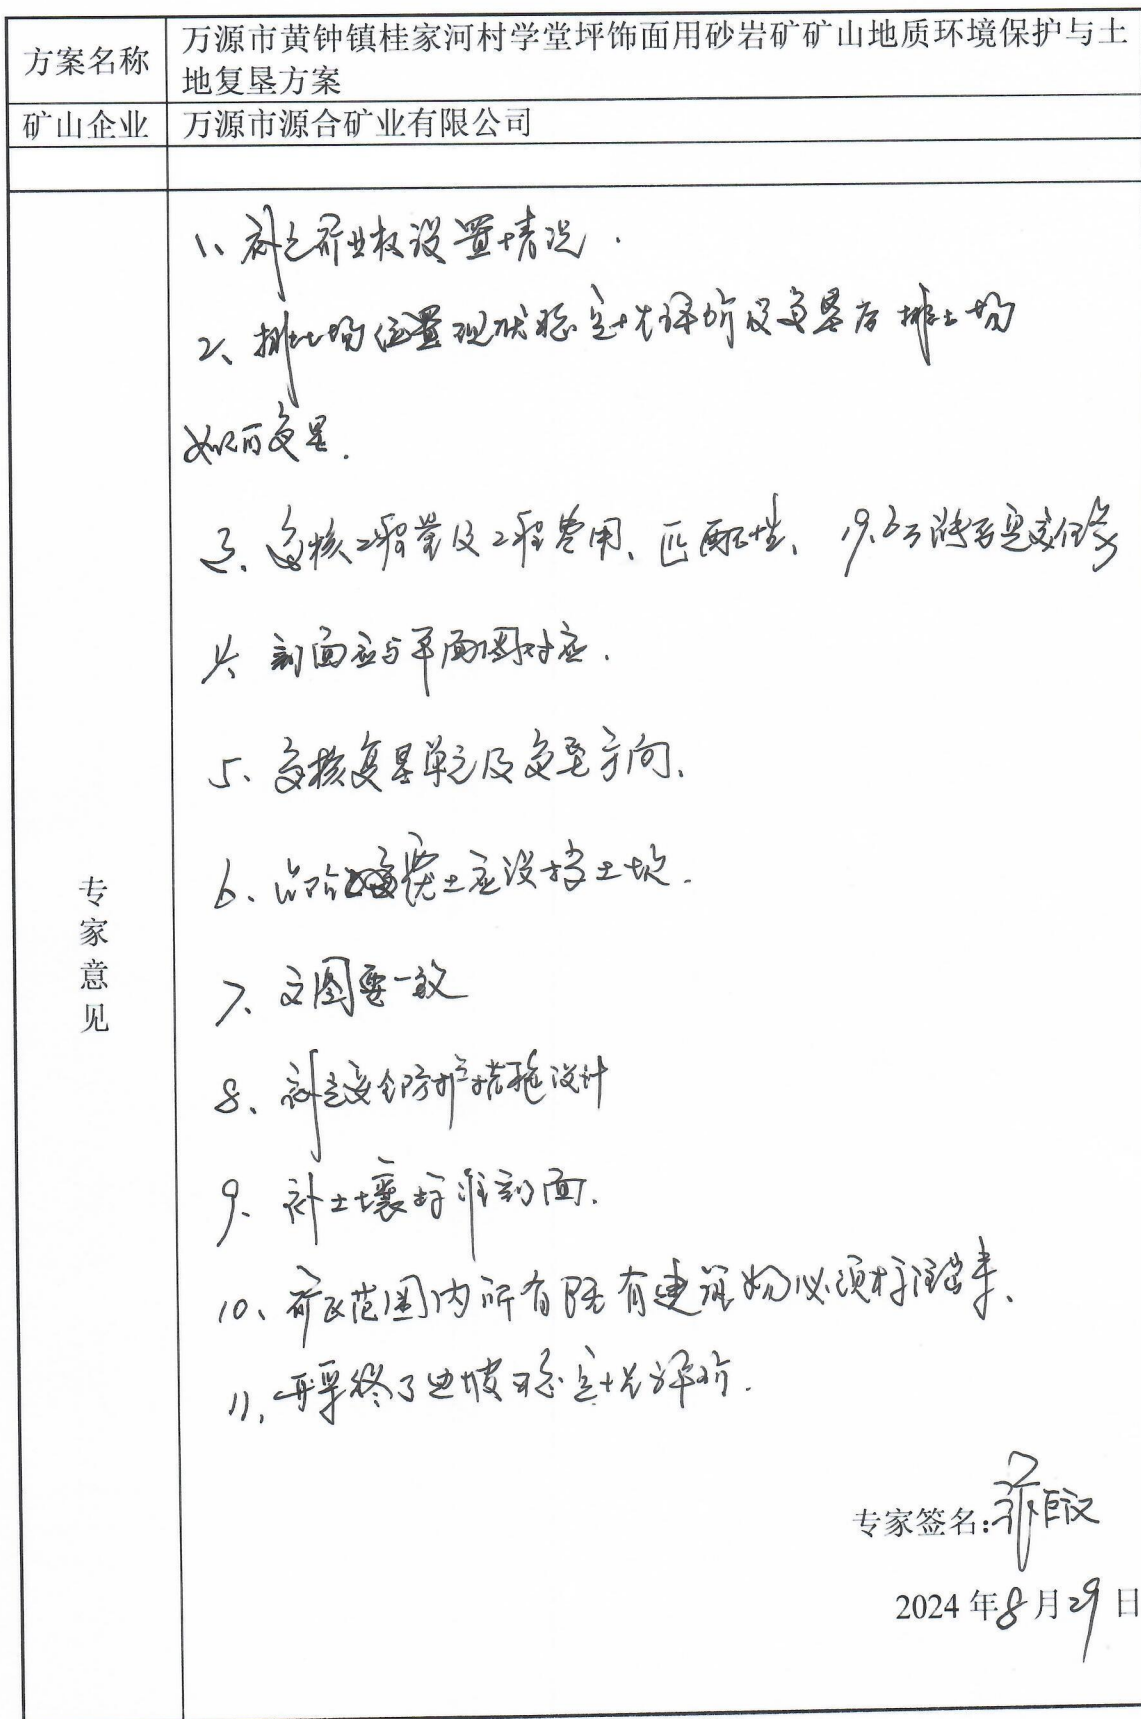 方案名称
万源市黄钟镇桂家河村学堂坪饰面用砂岩矿矿山地质环境保护与土
地复垦方案
矿山企业
万源市源合矿业有限公司
专家意见
1、补充矿业权设置情况.
2、排土场位置现状稳定性评价及复垦后排土场
如何复垦.
3、复核工程量及工程费用、匹配性、
4、剖面应与平面图对应.
5、复核复垦单元及复垦方向、
6、台阶覆土应设挡土坎.
7、文图要一致
8、补充安全防护措施设计
9、补土壤标准剖面.
10、矿区范围内所有既有建筑物必须标注出来、
11、开采终了边坡稳定性评价.
专家签名:
2024年8月29日